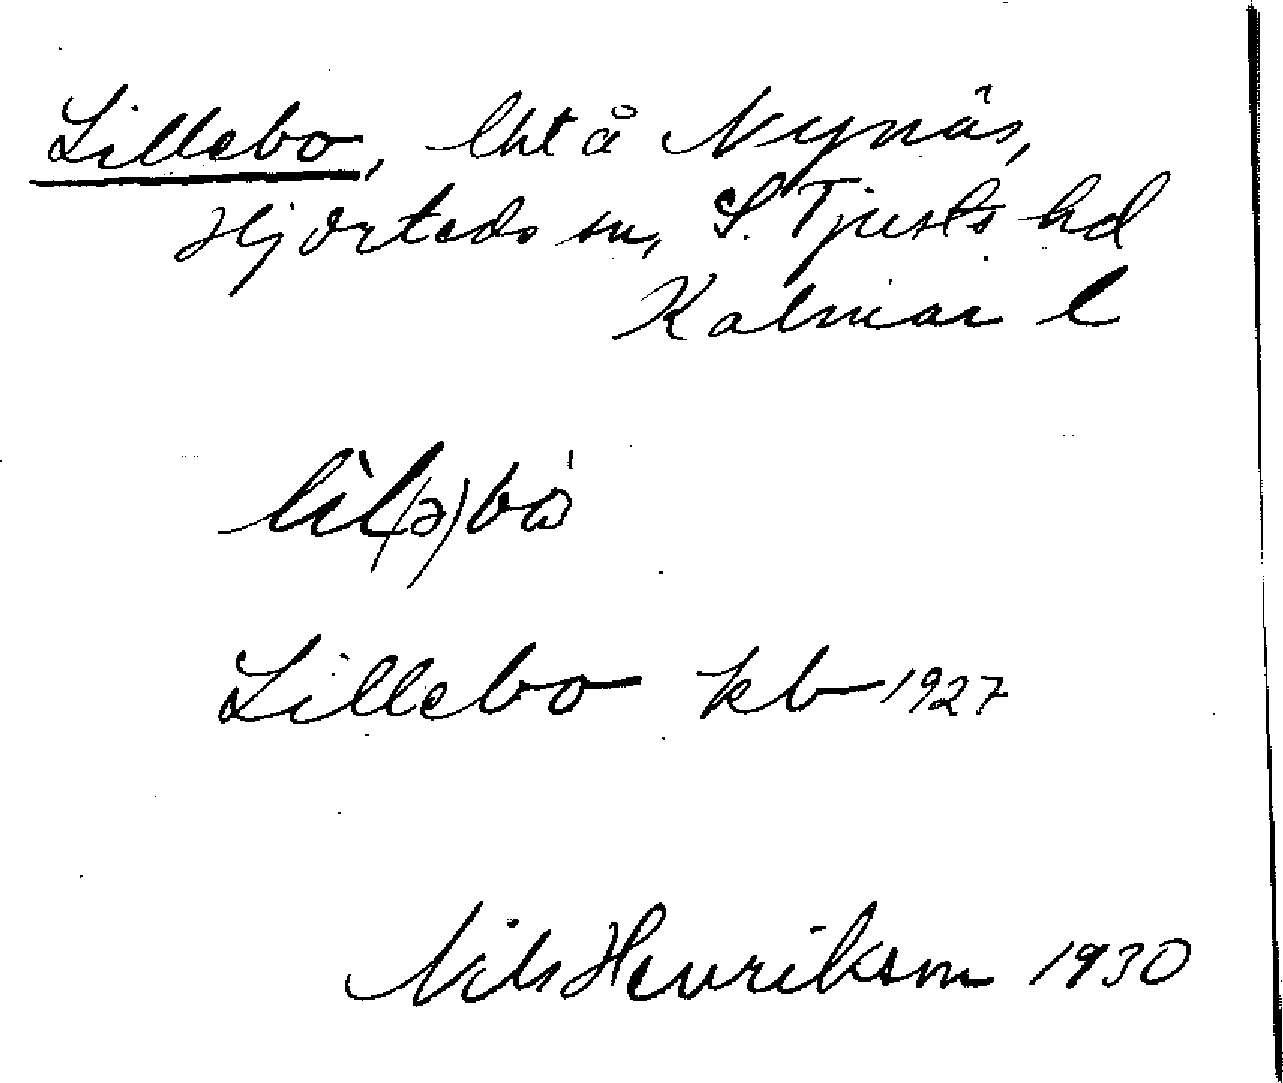 Lillebo, lht å Nynäs,
Hjorteds sn, S. Tjusts hd
Kalmar l
lìl(ə)bó
Lillebo kb 1927
Nils Henrikson 1930